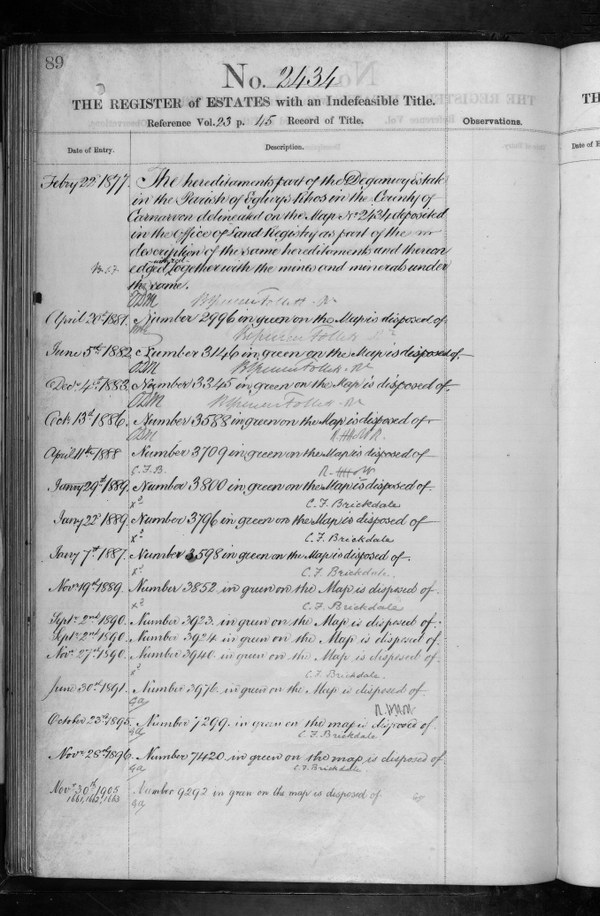 89
No. 2434
THE REGISTER of ESTATES with an Indefeasible Title.
Reference Vol. 23 p. 45 Record of Title.
Observations.
Date of Entry.
Description.
Febry 22nd 1877. The hereditaments part of the Deganwy Estate
in the Parish of Eglwys Rhos in the County of
Carnarvon delineated on the Map No 2434 deposited
in the Office of Land Registry as part of the
description of the same hereditaments and thereon
edged together with the mines and minerals under
the same.
April 20th 1881. Number 2996 in green on the Map is disposed of
June 5th 1882. Number 3146 in green on the Map is disposed of
Decr 4th 1883. Number 3345 in green on the Map is disposed of
Octr 13th 1886. Number 3588 in green on the Map is disposed of
April 11th 1888 Number 3709 in green on the Map is disposed of
C.F.B.
Janry 29th 1889. Number 3800 in green on the Map is disposed of
C. F. Brickdale
Janry 22nd 1889. Number 3796 in green on the Map is disposed of
C. F. Brickdale
Janry 7th 1887. Number 3598 in green on the Map is disposed of.
C. F. Brickdale.
Novr 19th 1889. Number 3852 in green on the Map is disposed of.
C. F. Brickdale
Septr 2nd 1890. Number 3923 in green on the Map is disposed of.
Septr 2nd 1890. Number 3924 in green on the Map is disposed of.
Novr 27th 1890. Number 3940 in green on the Map is disposed of.
C. F. Brickdale.
June 30th 1891. Number 3976 in green on the Map is disposed of.
October 23rd 1895. Number 7299 in green on the map is disposed of.
C. F. Brickdale
Novr 28th 1896. Number 7420 in green on the map is disposed of
C. F. Brickdale.
Novr 30th 1905 Number 9292 in green on the map is disposed of
1661, 1662, 1663
TH
Date of E